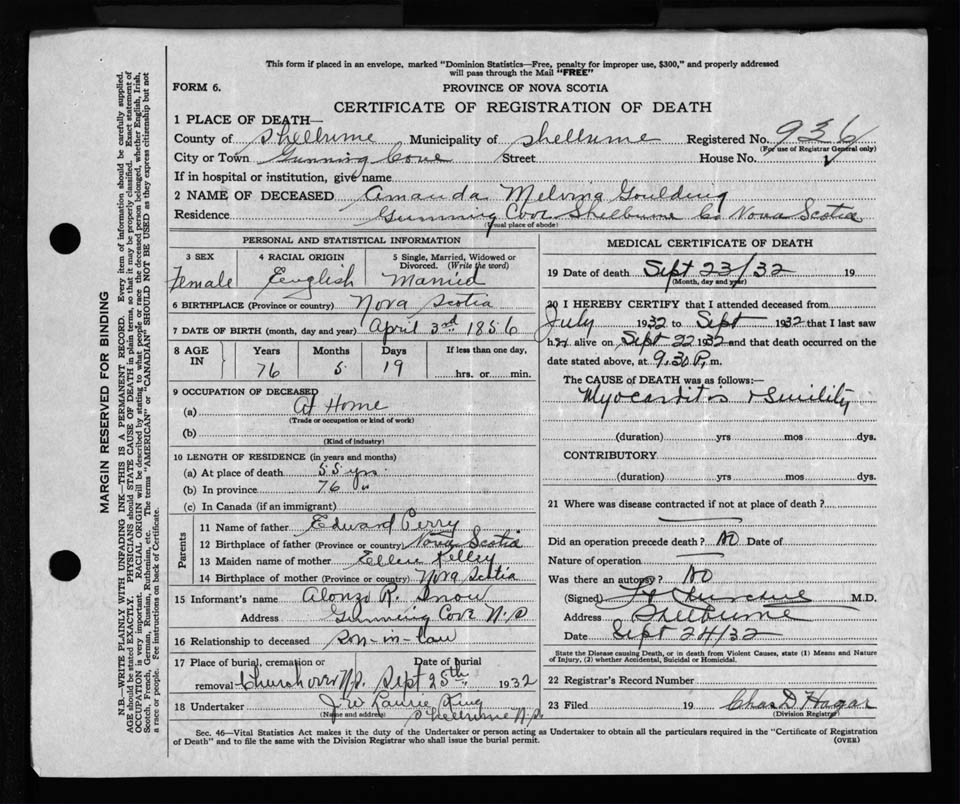 This form if placed in an envelope, marked "Dominion Statistics—Free, penalty for improper use, $300," and properly addressed
will pass through the Mail "FREE"
FORM 6. PROVINCE OF NOVA SCOTIA
CERTIFICATE OF REGISTRATION OF DEATH
1 PLACE OF DEATH—
County of Shelburne Municipality of Shelburne Registered No. 936
(For use of Registrar General only)
City or Town Gunning Cove Street House No.
If in hospital or institution, give name
2 NAME OF DECEASED Amanda Melvina Goulding
Residence Gunning Cove Shelburne Co Nova Scotia
(Usual place of abode)
PERSONAL AND STATISTICAL INFORMATION
3 SEX 4 RACIAL ORIGIN 5 Single, Married, Widowed or
Divorced. (Write the word)
Female English Married
6 BIRTHPLACE (Province or country) Nova Scotia
7 DATE OF BIRTH (month, day and year) April 3rd 1856
8 AGE IN Years Months Days If less than one day,
76 5 19 hrs. or min.
9 OCCUPATION OF DECEASED
(a) At Home
(Trade or occupation or kind of work)
(b)
(Kind of industry)
10 LENGTH OF RESIDENCE (in years and months)
(a) At place of death 55 yrs
(b) In province 76 "
(c) In Canada (if an immigrant)
Parents
11 Name of father Edward Perry
12 Birthplace of father (Province or country) Nova Scotia
13 Maiden name of mother Ellen Kelley
14 Birthplace of mother (Province or country) Nova Scotia
15 Informant's name Alonzo R. Snow
Address Gunning Cove N.S
16 Relationship to deceased Son-in-law
17 Place of burial, cremation or Date of burial
removal Churchover N.S. Sept 25th 1932
18 Undertaker J.W. Laurie King
(Name and address) Shelburne N.S.
MEDICAL CERTIFICATE OF DEATH
19 Date of death Sept 23/32 19
(Month, day and year)
20 I HEREBY CERTIFY that I attended deceased from
July 1932 to Sept 1932 that I last saw
her alive on Sept 22 1932 and that death occurred on the
date stated above, at 9.30 P. m.
The CAUSE of DEATH was as follows:—
Myocarditis & Senility
(duration) yrs mos dys.
CONTRIBUTORY
(duration) yrs mos dys.
21 Where was disease contracted if not at place of death?
Did an operation precede death? No Date of
Nature of operation
Was there an autopsy? No
(Signed) M.D.
Address Shelburne
Date Sept 24/32
State the Disease causing Death, or in death from Violent Causes, state (1) Means and Nature
of Injury, (2) whether Accidental, Suicidal or Homicidal.
22 Registrar's Record Number
23 Filed 19 Chas D. Hagar
(Division Registrar)
Sec. 46—Vital Statistics Act makes it the duty of the Undertaker or person acting as Undertaker to obtain all the particulars required in the "Certificate of Registration
of Death" and to file the same with the Division Registrar who shall issue the burial permit. (OVER)
MARGIN RESERVED FOR BINDING
N.B.—WRITE PLAINLY WITH UNFADING INK—THIS IS A PERMANENT RECORD. Every item of information should be carefully supplied.
AGE should be stated EXACTLY. PHYSICIANS should STATE CAUSE OF DEATH in plain terms, so that it may be properly classified. Exact statement of
OCCUPATION is very important. RACIAL ORIGIN will be described by stating to what people or race the deceased person belonged, whether English, Irish,
Scotch, French, German, Russian, Ruthenian, etc. The terms "AMERICAN" or "CANADIAN" SHOULD NOT BE USED as they express citizenship but not
a race or people. Fee instructions on back of Certificate.